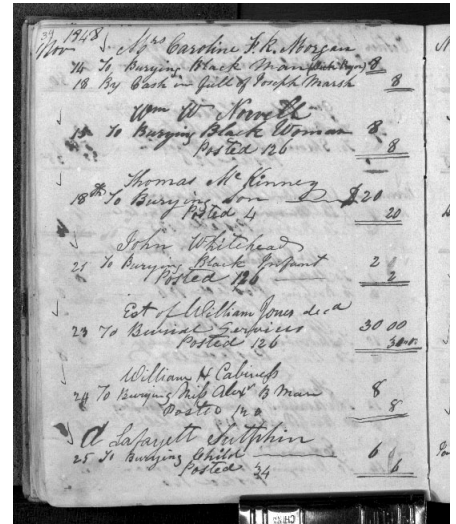 39 1848
Nov Mrs Caroline F. R. Morgan
14 To Burying Black Man 8
18 By Cash in full of Joseph Marsh 8
Wm W Norvell
15 To Burying Black Woman 8
Posted 126 8
Thomas McKinney
18th To Burying Son $20
Posted 4 20
John Whitehead
21 To Burying Black Infant 2
Posted 126 2
Est of William Jones decd
23 To Burial Services 30 00
Posted 126 30 00
William H Cabiness
24 To Burying Alexr B Man 8
Posted 8
Lafayett Sutphin
25 To Burying Child 6
Posted 34 6